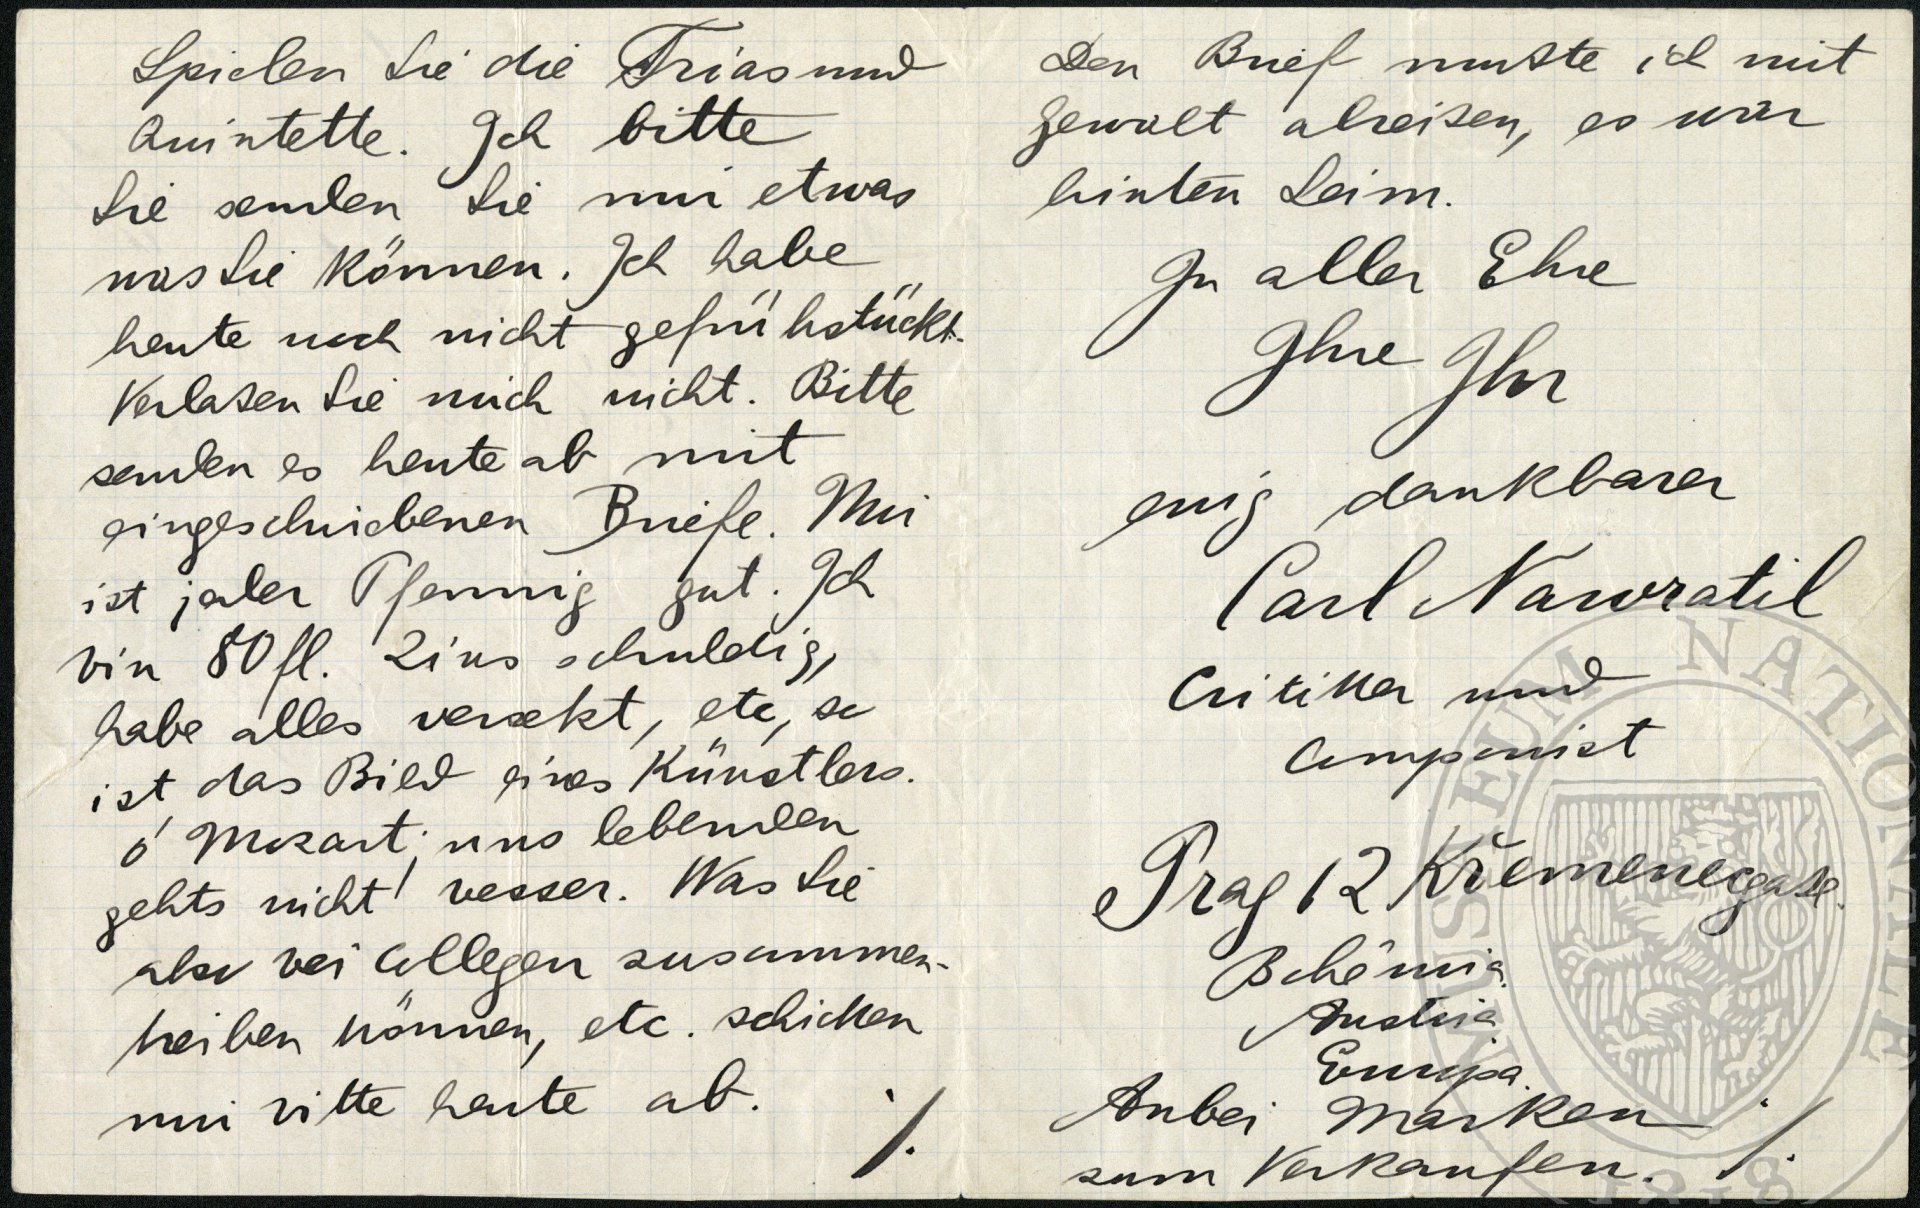 Spielen Sie die Trias und
Quintette. Ich bitte
Sie senden Sie mir etwas
was Sie können. Ich habe
heute noch nicht gefrühstückt.
Verlaßen Sie mich nicht. Bitte
senden es heute ab mit
eingeschriebenen Briefe. Mir
ist jeder Pfennig gut. Ich
bin 80 fl. Zins schuldig,
habe alles versekt, etc, so
ist das Bild eines Künstlers.
ó Mozart, uns lebenden
gehts nicht besser. Was Sie
also bei Collegen zusammen-
treiben können, etc. schicken
mir bitte heute ab.
./.
Den Brief mußte ich mit
gewalt abreißen, es war
hinten Leim.
In aller Ehre
Ihre Ihr
ewig dankbarer
Carl Nawratil
Critiker und
Componist
Prag 12 Křemenecgaße.
Bohêmia
Austria
Europa.
Anbei Marken
zum Verkaufen. ./.
MUSEUM NATIONALE
1818